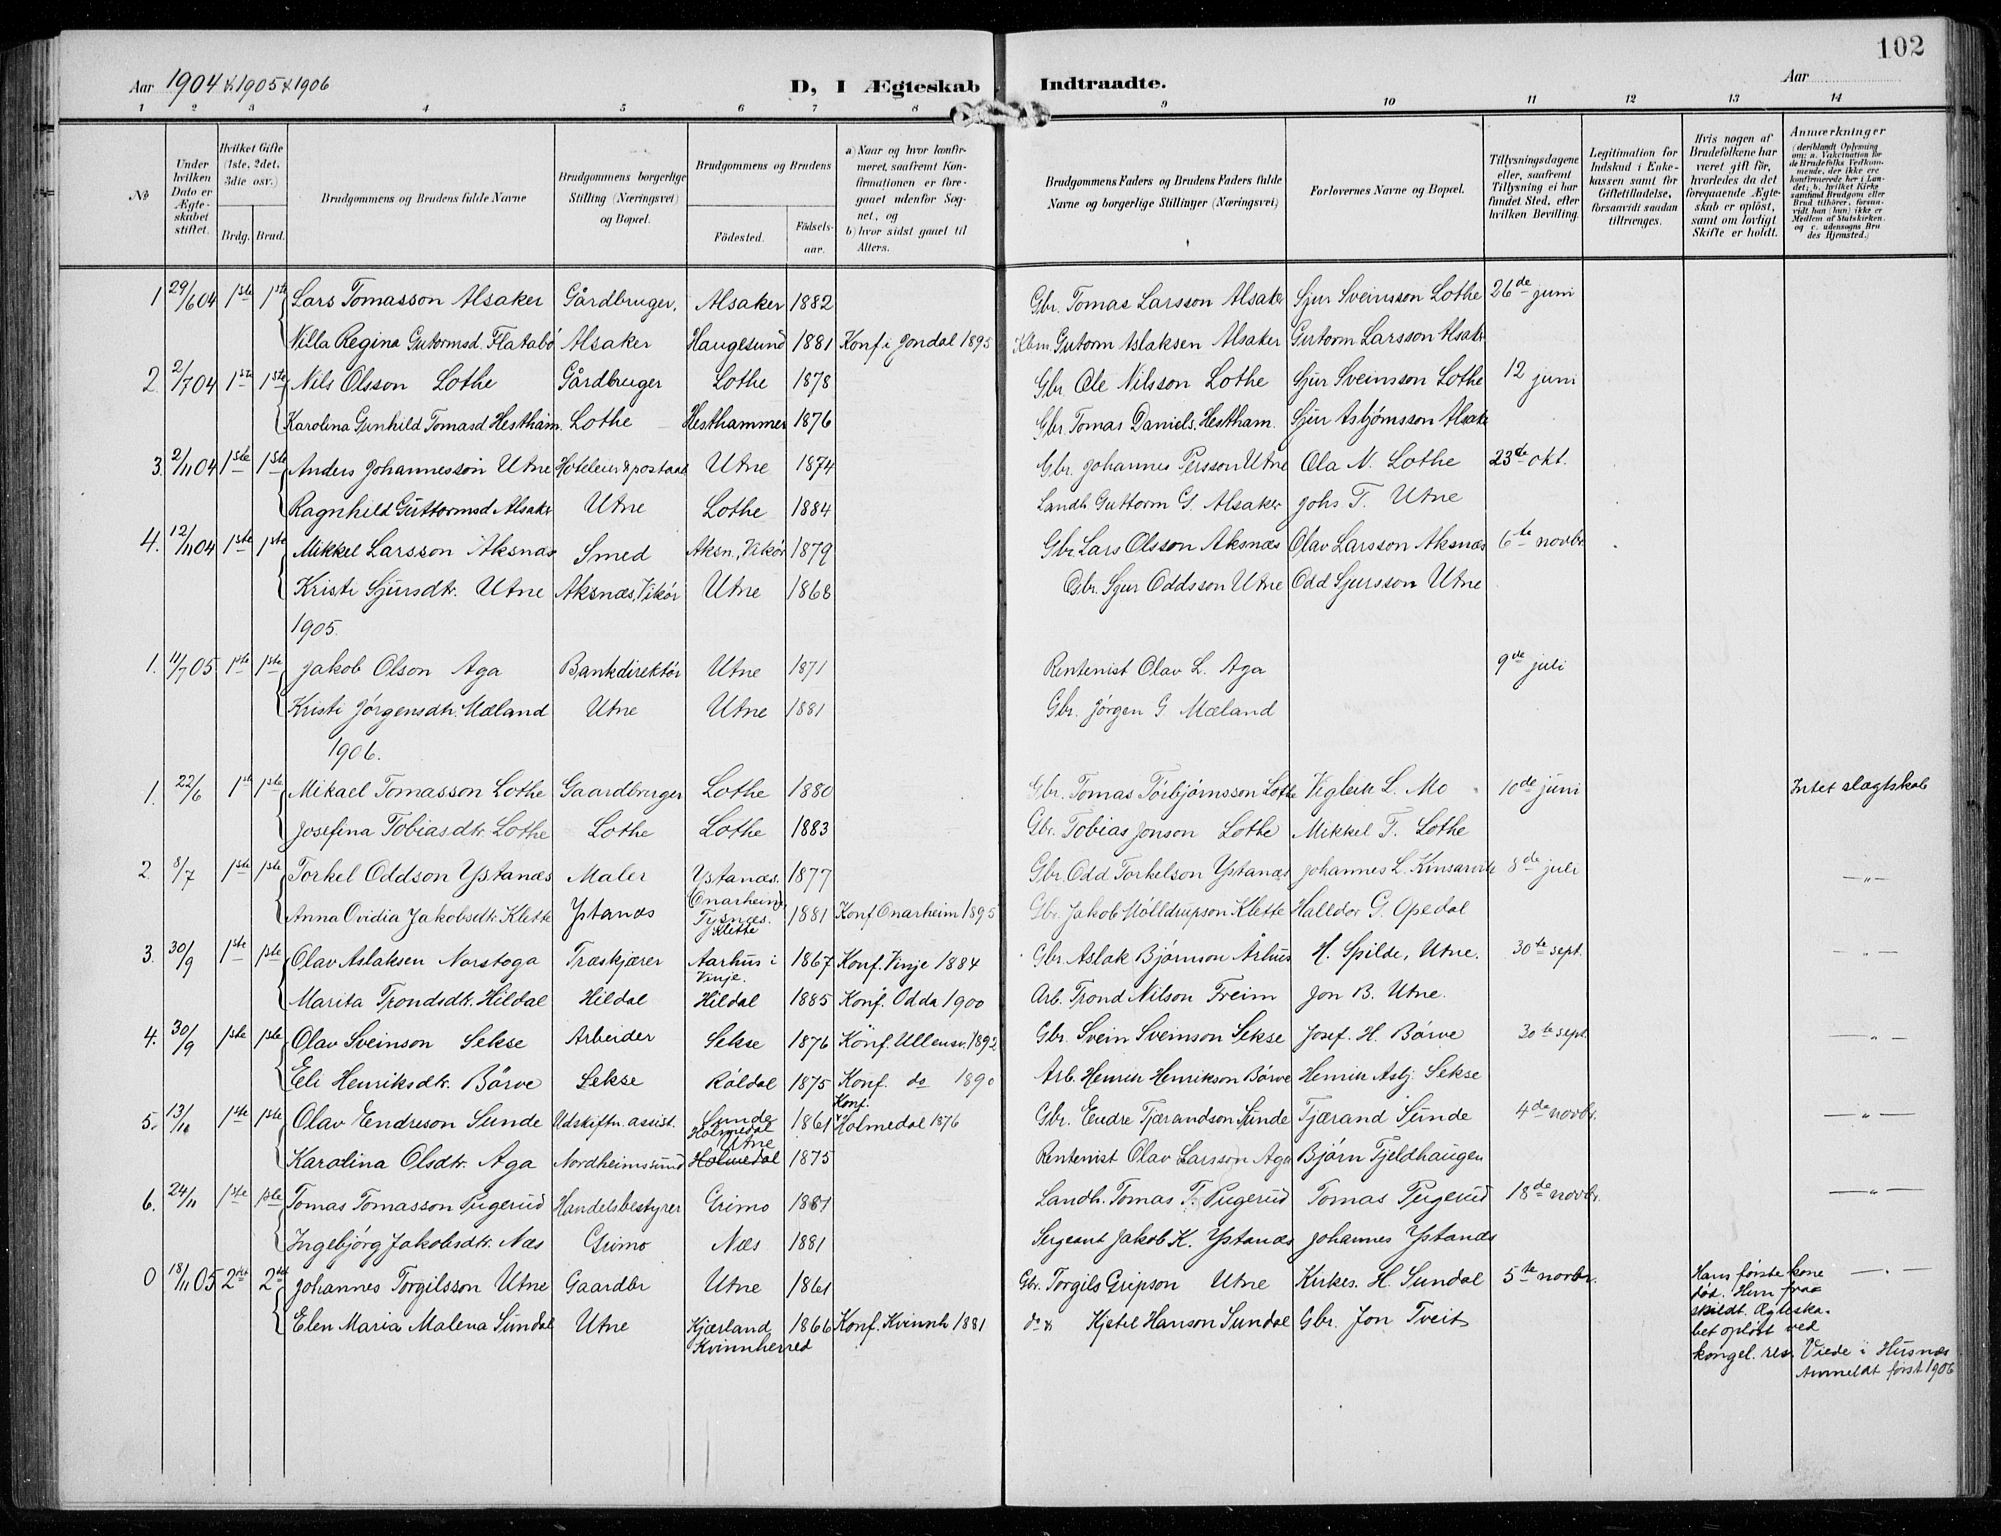 102
Aar 1904 & 1905 & 1906
D, I Ægteskab Indtraadte.
Aar
1 2 3 4 5 6 7 8 9 10 11 12 13 14
No
Under hvilken Dato er Ægteskabet stiftet.
Hvilket Gifte (1ste, 2det, 3die osv.)
Brdg. Brud.
Brudgommens og Brudens fulde Navne
Brudgommens borgerlige Stilling (Næringsvei) og Bopæl.
Brudgommens og Brudens
Födested. Födselsaar.
a) Naar og hvor konfirmeret, saafremt Konfirmationen er foregaaet udenfor Sognet, og
b) hvor sidst gaaet til Alters.
Brudgommens Faders og Brudens Faders fulde Navne og borgerlige Stillinger (Næringsvei)
Forlovernes Navne og Bopæl.
Tillysningsdagene eller, saafremt Tillysning ei har fundet Sted, efter hvilken Bevilling.
Legitimation for Indskud i Enkekassen samt for Giftetilladelse, forsaavidt saadan tiltrænges.
Hvis nogen af Brudefolkene har været gift för, hvorledes da det foregaaende Ægteskab er oplöst, samt om lovligt Skifte er holdt.
Anmærkninger (deriblandt Oplysning om: a. Vakcination for de Brudefolks Vedkommende, der ikke ere konfirmerede her i Landet; b. hvilket Kirkesamfund Brudgom eller Brud tilhörer, forsaavidt han (hun) ikke er Medlem af Statskirken, og c. udensogns Brudes Hjemsted.)
1 29/6 04 1ste 1ste Lars Tomasson Alsaker Gårdbruger, Alsaker 1882 Gbr. Tomas Larsson Alsaker Sjur Sveinsson Lothe 26de juni
Villa Regina Gutormsd. Flatabö Alsaker Haugesund 1881 Konf i Jondal 1895 Gutorm Aslaksen Alsaker Gutorm Larsson Alsaker
2. 2/7 04 1ste 1ste Nils Olsson Lothe Gårdbruger Lothe 1878 Gbr. Ole Nilsson Lothe Sjur Sveinsson Lothe 12 juni
Karolina Gunhild Tomasd Hestham. Lothe Hesthammer 1876 Gbr. Tomas Daniels. Hestham. Sjur Asbjørnsson Alsaker
3. 2/11 04 1ste 1ste Anders Johannesson Utne Hoteleier & postaab Utne 1874 Gbr. Johannes Persson Utne Ola N. Lothe 23de okt.
Ragnhild Guttormsd. Alsaker Utne Lothe 1884 Landh Guttorm G. Alsaker Johs T. Utne
4. 12/11 04 1ste 1ste Mikkel Larsson Aksnæs Smed Aksn., Vikör 1879 Gbr. Lars Olsson Aksnæs Olav Larsson Aksnæs 6te novbr
Kristi Sjursdtr. Utne Aksnæs, Vikör Utne 1868 Gbr. Sjur Oddsson Utne Odd Sjursson Utne
1905.
1. 11/7 05 1ste 1ste Jakob Olson Aga Bankdirektör Utne 1871 Rentenist Olav L. Aga 9de juli
Kristi Jørgensdtr. Mæland Utne Utne 1881 Gbr. Jörgen G Mæland
1906.
1. 22/6 1ste 1ste Mikael Tomasson Lothe Gaardbruger Lothe 1880 Gbr. Tomas Torbjørnsson Lothe Vigleik L. Mo 10de juni Intet slægtskab
Josefina Tobiasdtr. Lothe Lothe Lothe 1883 Gbr. Tobias Jonson Lothe Mikkel T. Lothe
2. 8/7 1ste 1ste Torkel Oddson Ystanæs Maler Ystanæs. 1877 Gbr. Odd Torkelson Ystanæs Johannes L. Kinsarvik 8de juli —"—
Anna Ovidia Jakobsdtr. Klette Ystanæs Onarheim, Tysnæs. Klette 1881 Konf Onarheim 1895 Gbr. Jakob Mölldrupson Klette Halldor G. Opedal
3. 30/9 1ste 1ste Olav Aslaksen Norstoga Træskjærer Aarhus i Vinje. 1867 Konf. Vinje 1884 Gbr. Aslak Bjørnson Århus H. Spilde, Utne. 30te sept. —"—
Marita Trondsdtr. Hildal Hildal Hildal 1885 Konf. Odda 1900 Arb. Trond Nilson Freim Jon B. Utne.
4. 30/9 1ste 1ste Olav Sveinson Sekse Arbeider Sekse 1876 Konf. Ullensv. 1892 Gbr. Svein Sveinson Sekse Josef. H. Börve 30te sept. —"—
Eli Henriksdtr. Börve Sekse Röldal 1875 Konf. do 1890 Arb. Henrik Henrikson Börve Henrik Asbj. Sekse
5. 13/11 1ste 1ste Olav Endreson Sunde Udskiftn. assist. Sunde Holmedal 1861 Konf. Holmedal 1876 Gbr. Endre Tjærandson Sunde Tjærand Sunde 4de novbr. —"—
Karolina Olsdtr. Aga Nordheimsund Utne Holmedal 1875 Rentenist Olav Larsson Aga Bjørn Fjeldhaugen
6. 24/11 1ste 1ste Tomas Tomasson Pugerud Handelsbestyrer Grimo 1881 Landh. Tomas T. Pugerud Tomas Pugerud 18de novbr. —"—
Ingebjörg Jakobsdtr. Næs Grimo Næs 1881 Sergeant Jakob K. Ystanæs Johannes Ystanæs
0 18/11 05 2det 2det Johannes Torgilsson Utne Gaardbr Utne 1861 Gbr. Torgils Gripson Utne Kirkes. H. Sundal 5te novbr. Hans første kone død. Hun fraskildt. Ægteskabet opløst ved kongel. res. —"—
Elen Maria Malena Sundal Utne Kjærland Kvinnherred 1866 Konf. Kvinnh 1881 do Kjetil Hanson Sundal Gbr. Jon Tveit
Viede i Husnæs
Anmeldt först 1906